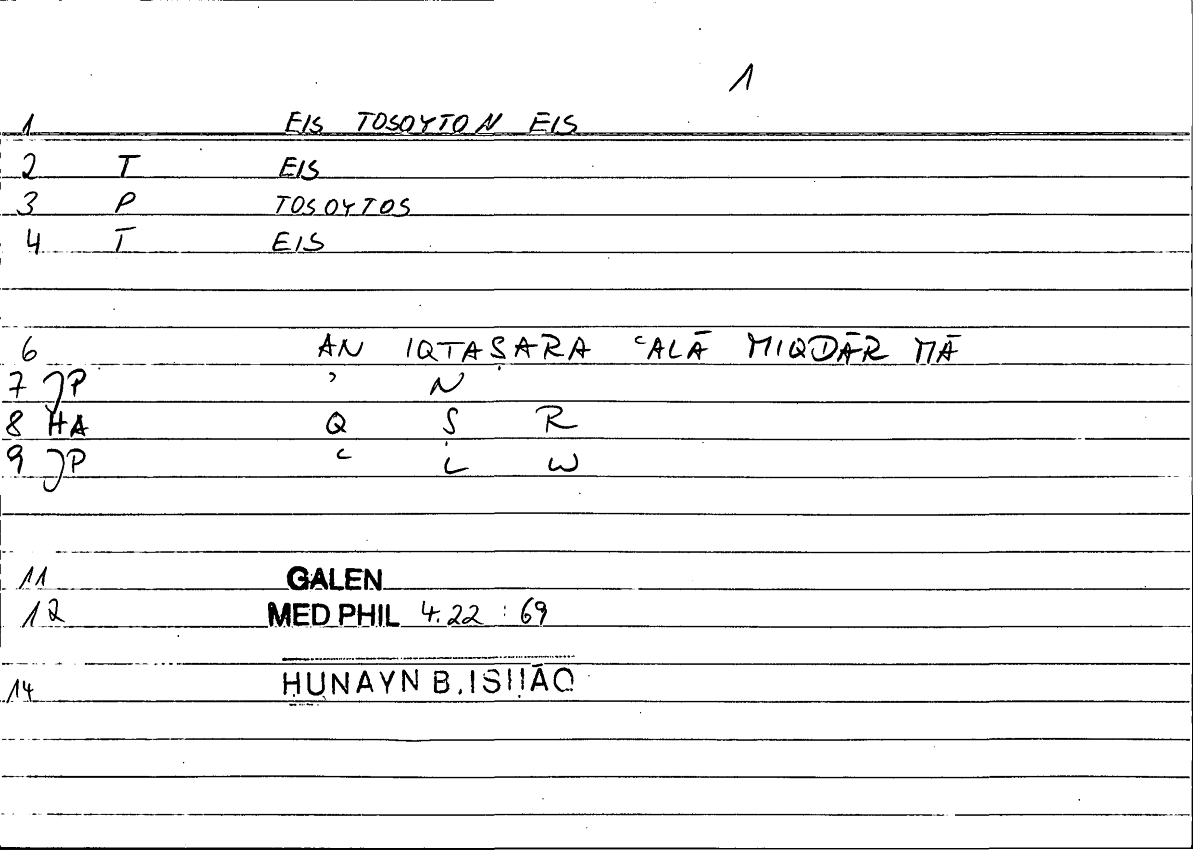 1
1 EIS TOSOYTON EIS
2 T EIS
3 P TOSOYTOS
4 T EIS
6 AN IQTAṢARA ʿALĀ MIQDĀR MĀ
7 JP ʾ N
8 HA Q Ṣ R
9 JP ʿ L W
11 GALEN
12 MED PHIL 4.22 : 69
14 ḤUNAYN B. ISḤĀQ